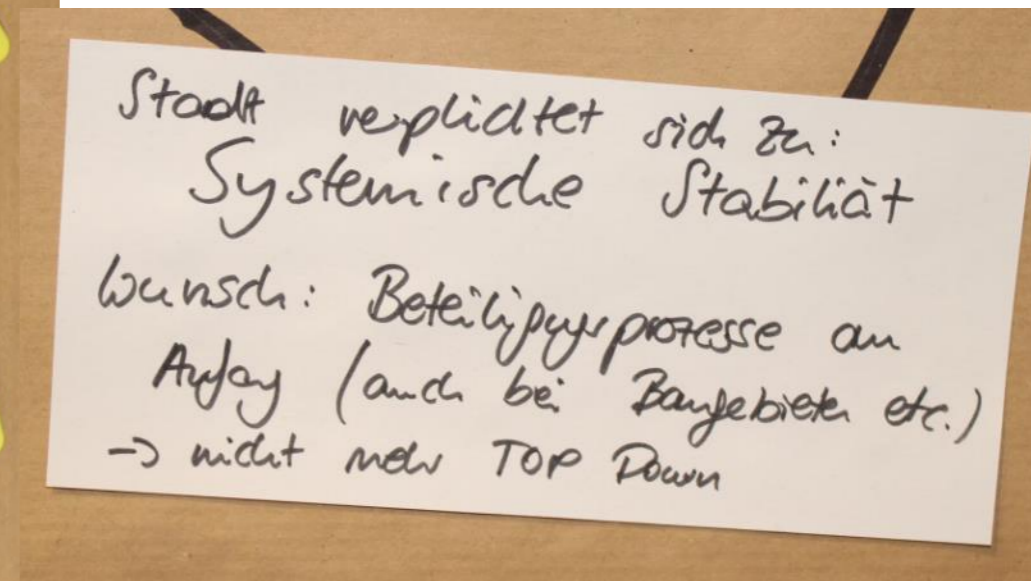 Stadt verplichtet sich zu:
Systemische Stabiliät
Wunsch: Beteiligungsprozesse am
Anfang (auch bei Baugebieten etc.)
-> nicht mehr TOP Down